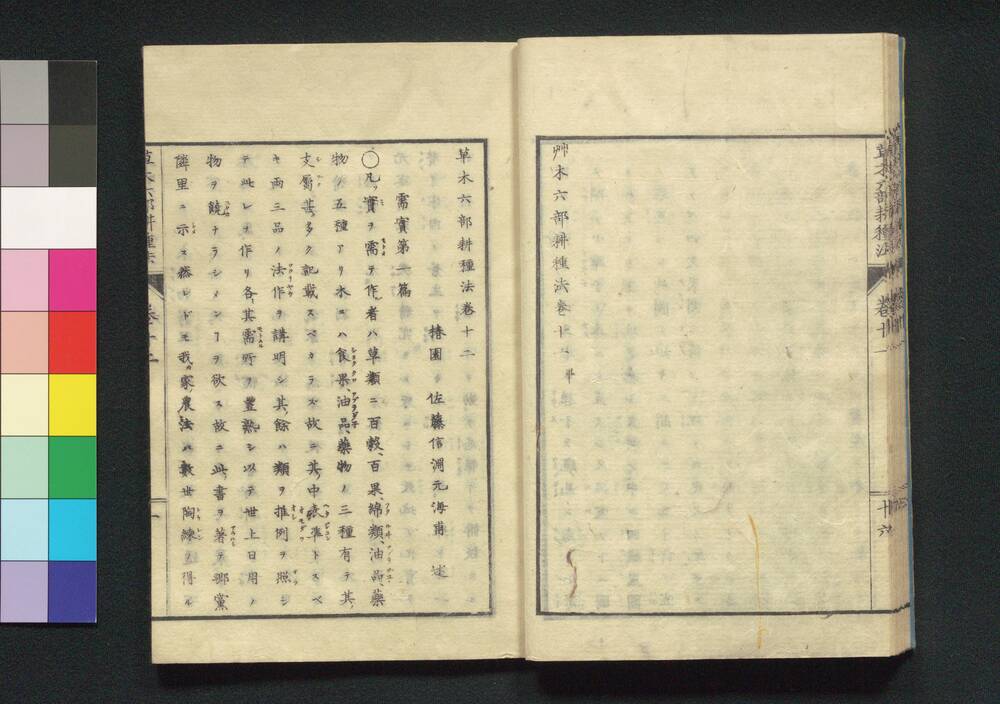 艸木六部耕種法巻十一 畢
草木六部耕種法
巻十一
十六
草木六部耕種法巻十二
椿園 佐藤信淵元海甫 述
需實第一篇
〇凡ソ實ヲ需テ作ル者ハ草類ニ百穀、百果、綿類、油品、藥
物ノ五種アリ木ニハ食果、油品、藥物ノ三種有テ其
支屬甚タ多ク記載スベカラズ故ニ其中表準トスベ
キ両三品ノ法作ヲ講明シ其餘ハ類ヲ推例ヲ照シ
テ此レヲ作リ各其需所ヲ豊熟シ以テ世上日用ノ
物ヲ饒ナラシメンヿヲ欲ス故ニ此書ヲ著テ鄕黨
隣里ニ示ス然レドモ我カ家農法ハ數世陶練シ得ル
草木六部耕種法
巻十二
一